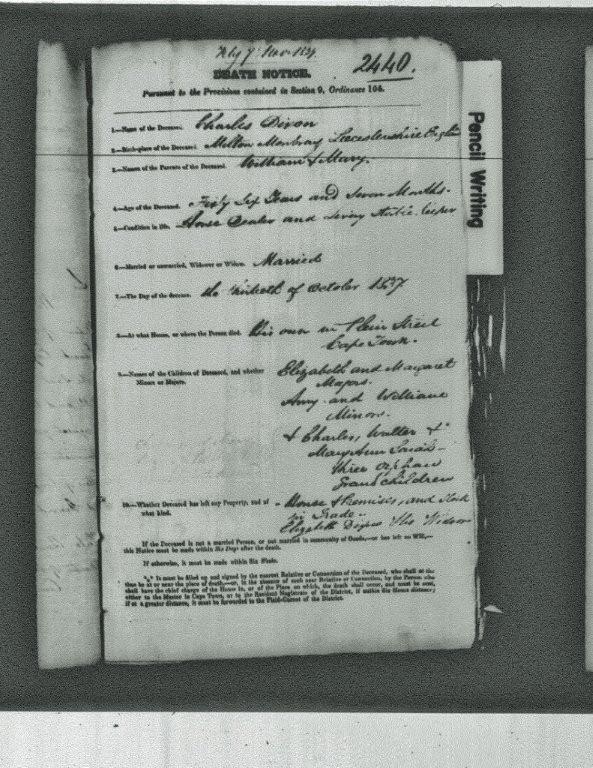 2440.
DEATH NOTICE.
Pursuant to the Provisions contained in Section 9, Ordinance 104.
1.—Name of the Deceased. Charles Dixon
2.—Birth-place of the Deceased Melton Mowbray Leicestershire England
3.—Names of the Parents of the Deceased. William & Mary.
4.—Age of the Deceased. Forty Six Years and Seven Months.
5.—Condition in life. Horse Dealer and Livery Stable keeper
6.—Married or unmarried, Widower or Widow. Married
7.—The Day of the decease. the of October 1837
8.—At what House, or where the Person died. His own in Plein Street
Cape Town.
9.—Names of the Children of Deceased, and whether Elizabeth and Margaret
Minors or Majors. Majors.
Amy and William
Minors.
& Charles, Walter &
Mary Ann Sarah
three orphan
Grand children
10.—Whether Deceased has left any Property, and of House & Premises, and Stock
what kind. in Trade.
Elizabeth Dixon the Widow
If the Deceased is not a married Person, or not married in community of Goods,—or has left no Will,—
this Notice must be made within Six Days after the death.
If otherwise, it must be made within Six Weeks.
*** It must be filled up and signed by the nearest Relative or Connection of the Deceased, who shall at the
time be at or near the place of death,—or, in the absence of such near Relative or Connection, by the Person who
shall have the chief charge of the House in, or of the Place on which, the death shall occur, and must be sent,
either to the Master in Cape Town, or to the Resident Magistrate of the District, if within Six Hours distance;
if at a greater distance, it must be forwarded to the Field-Cornet of the District.
Pencil Writing